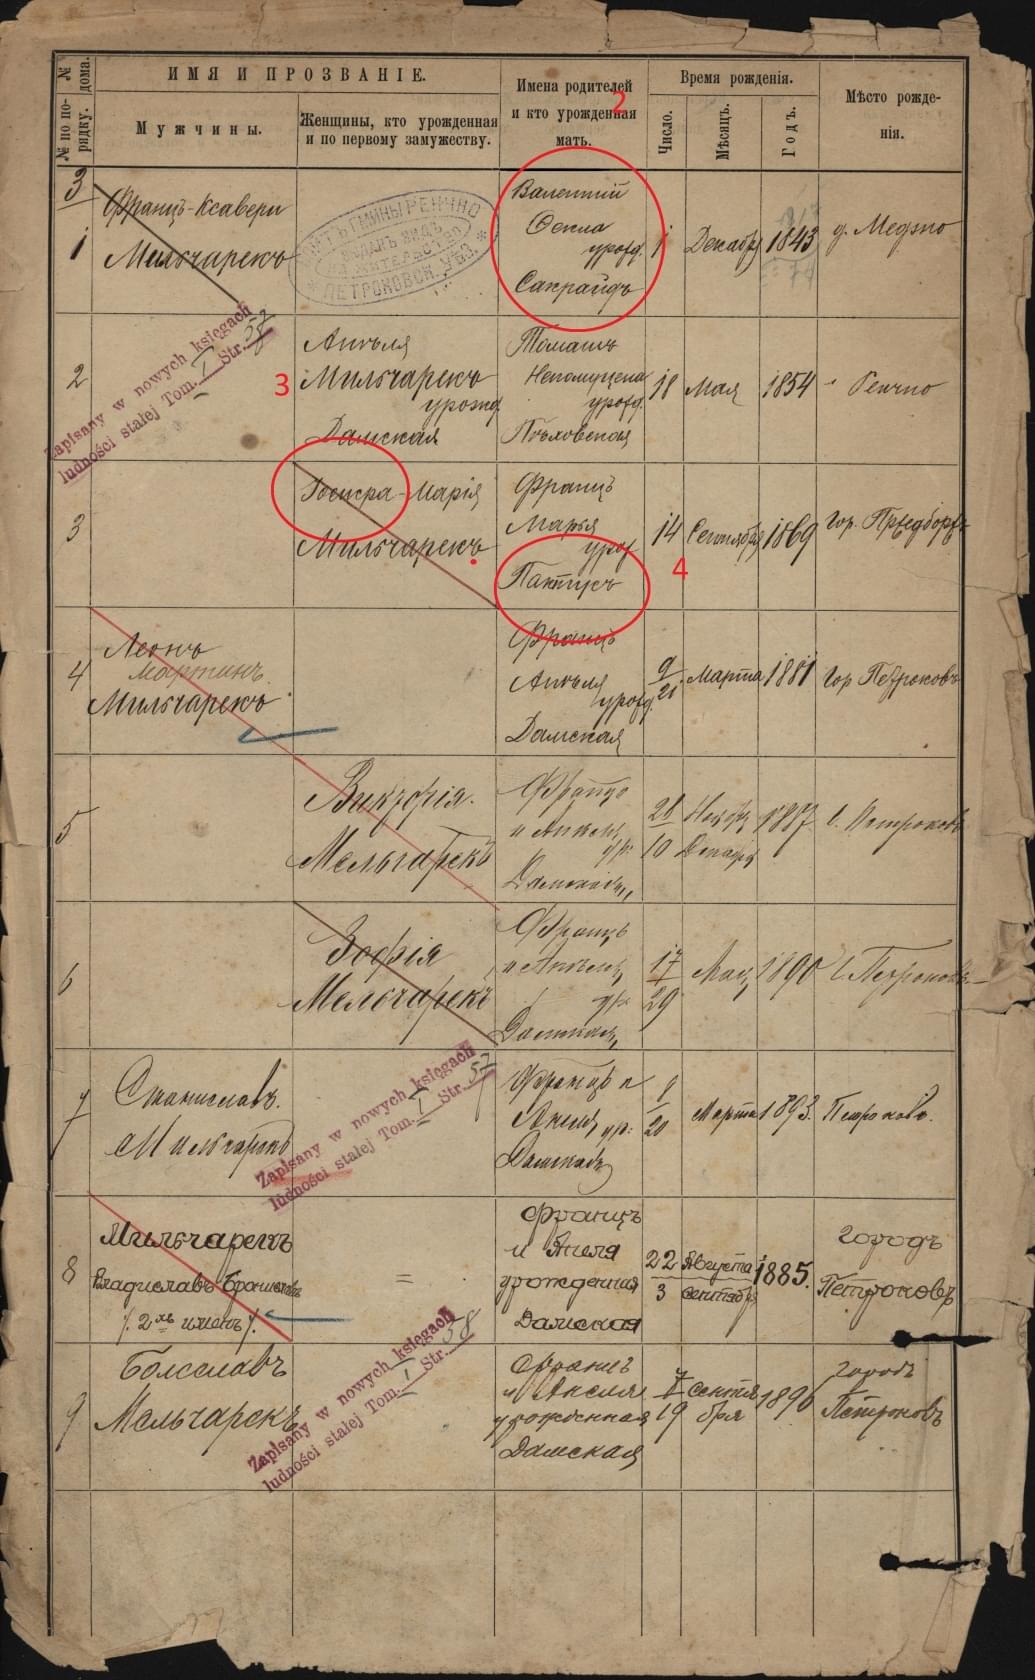 № дома.
№ по по-
рядку.
ИМЯ И ПРОЗВАНІЕ.
Мужчины.
Женщины, кто урожденная
и по первому замужеству.
Имена родителей
и кто урожденная
мать.
Время рожденія.
Число.
Мѣсяцъ.
Годъ.
Мѣсто рожде-
нія.
2
3
1
Францъ-Ксавери
Мильчарекъ
ПЕТРОКОВСК. УѢЗ.
Валентій
Текла
урожд.
1
Декабря
1843
д. Медзно
2
Анѣля
Мильчарекъ
урожд
Дамская
Томашъ
Непомуцена
урожд.
18
Мая
1854
Ренчно
3
Zapisany w nowych księgach
ludności stałej Tom. I Str. 58
3
Марія
Мильчарекъ
Францъ
Марья
урод
14
Сентября
1869
гор. Пржедборже
4
4
Леонъ
Мартинъ.
Мильчарекъ
Францъ
Анѣля
урожд.
Дамская
9
21
Марта
1881
гор Петроковъ
5
Викторія.
Мельчарекъ
Францъ
и Анѣли
ур.
28
10
Ноября
Декабря
1887
г. Петроковъ
6
Зофія
Мельчарекъ
Францъ
и Анѣли
ур.
Дамская
17
29
Мая
1890
г. Петроковъ
7
Станиславъ.
Мильчарекъ
Францъ и
Анеля ур:
8
20
Марта
1893.
Петроковъ.
Zapisany w nowych księgach
ludności stałej Tom. I Str. 57
8
Мильчарекъ
Владиславъ Брониславъ
/. 2хъ именъ /.
=
Францъ
и Анеля
урожденная
Дамская
22
3
Августа
сентября
1885.
городъ
Петроковъ
9
Болеславъ
Мельчарекъ
Францъ
и Анеля
урожденная
Дамская
7
19
сентя
бря
1896
городъ
Петроковъ
Zapisany w nowych księgach
ludności stałej Tom. I Str. 58